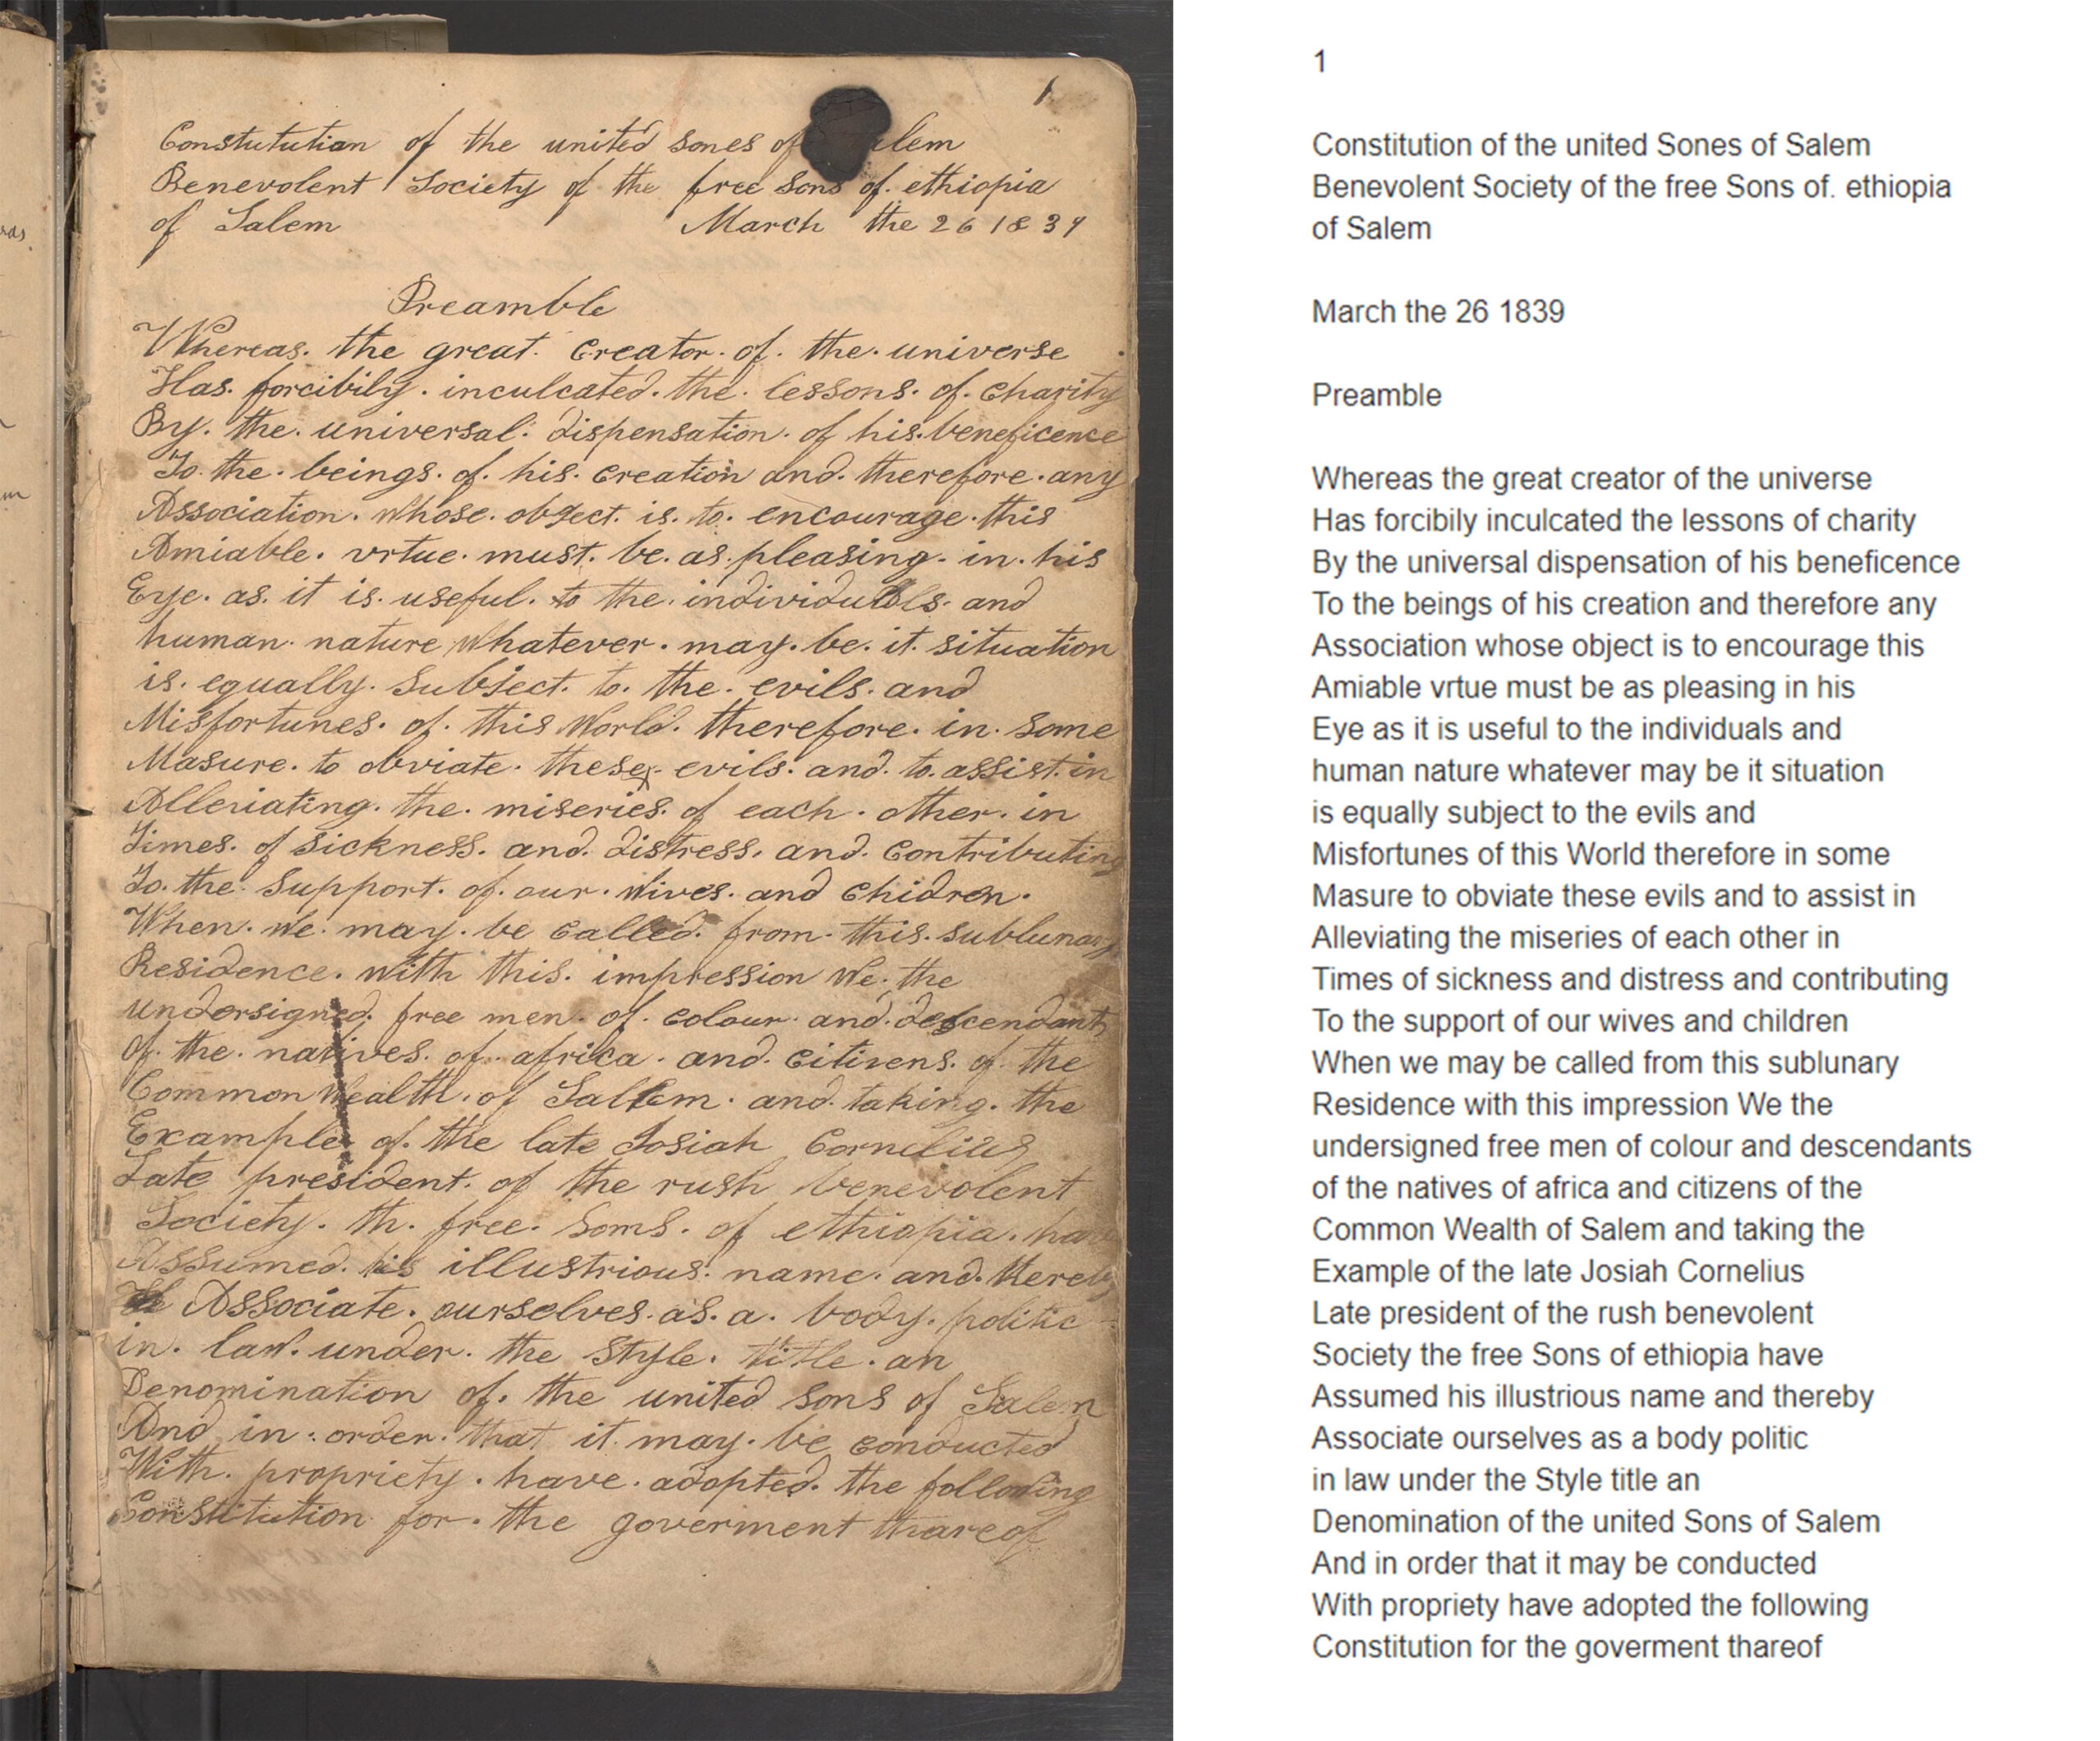 1
Constutution of the united sones of alem
Benevolent Society of the free Sons of. ethiopia
of Salem March the 26 1839
Preamble
Whereas. the great. creator. of. the. universe
Has. forcibily. inculcated. the. lessons. of. charity
By. the. universal. dispensation. of his. beneficence
To. the. beings. of. his. creation and. therefore. any
Association. whose. object. is. to. encourage. this
Amiable. vrtue. must. be. as. pleasing. in. his
Eye. as. it is. useful. to the. individuals. and
human. nature whatever. may. be. it. situation
is. equally. Subject. to. the. evils. and
Misfortunes. of. this World. therefore. in. some
Masure. to obviate. these. evils. and. to. assist. in
Alleviating. the. miseries. of each. other. in
Times. of sickness. and. distress. and. contributing
To. the. Support. of. our. wives. and chidren.
When. we. may. be called. from. this. sublunary
Residence. with this. impression We. the
undersigned. free men. of. colour. and. descendants
of. the. natives. of. africa. and. citizens. of. the
Common Wealth. of Sallem. and. taking. the
Example. of. the late Josiah Cornelius
Late president. of the rush benevolent
Society. th. free. Soms. of ethiopia. have
Assumed. his illustrious. name. and. thereby
Associate. ourselves. as. a. body. politic
in. law. under. the Style. title. an
Denomination of. the united sons of Salem
And in. order. that it. may. be conducted
With. propriety. have. adopted. the following
Constitution for. the goverment thareof
1
Constitution of the united Sones of Salem
Benevolent Society of the free Sons of. ethiopia
of Salem
March the 26 1839
Preamble
Whereas the great creator of the universe
Has forcibily inculcated the lessons of charity
By the universal dispensation of his beneficence
To the beings of his creation and therefore any
Association whose object is to encourage this
Amiable vrtue must be as pleasing in his
Eye as it is useful to the individuals and
human nature whatever may be it situation
is equally subject to the evils and
Misfortunes of this World therefore in some
Masure to obviate these evils and to assist in
Alleviating the miseries of each other in
Times of sickness and distress and contributing
To the support of our wives and children
When we may be called from this sublunary
Residence with this impression We the
undersigned free men of colour and descendants
of the natives of africa and citizens of the
Common Wealth of Salem and taking the
Example of the late Josiah Cornelius
Late president of the rush benevolent
Society the free Sons of ethiopia have
Assumed his illustrious name and thereby
Associate ourselves as a body politic
in law under the Style title an
Denomination of the united Sons of Salem
And in order that it may be conducted
With propriety have adopted the following
Constitution for the goverment thareof